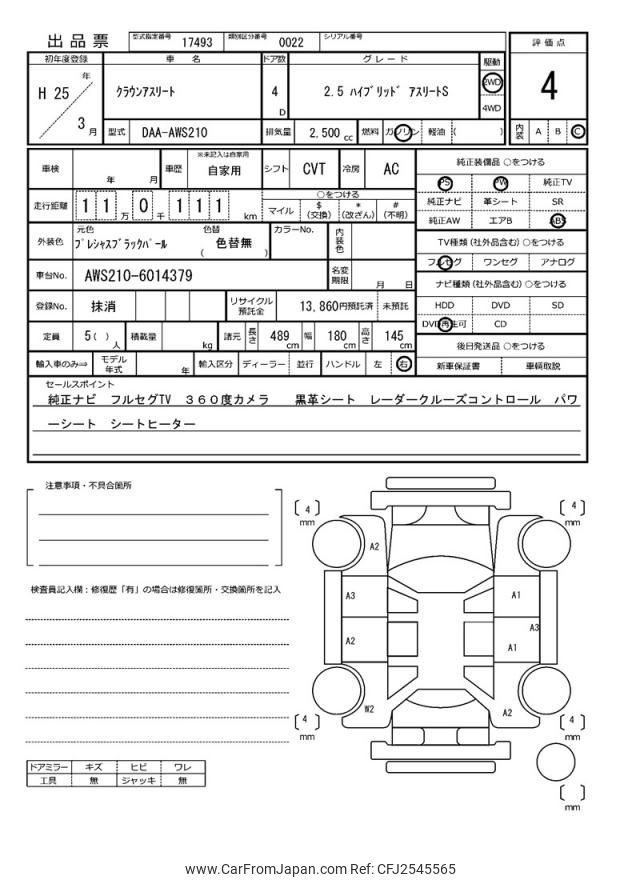 出品票 型式指定番号 17493 類別区分番号 0022 シリアル番号
評価点
4
内装 A B C
初年度登録 車名 ドア数 グレード 駆動
H 25 年 3 月
クラウンアスリート 4 D 2.5 ハイブリッド アスリートS 2WD
4WD
型式 DAA-AWS210 排気量 2,500 cc 燃料 ガソリン 軽油 ( )
車検 年 月 車歴 ※未記入は自家用 自家用 シフト CVT 冷房 AC
走行距離 1 1 万 0 千 1 1 1 km
○をつける
マイル $(交換) *(改ざん) #(不明)
外装色 元色 プレシャスブラックパール 色替 ( 色替無 )
カラーNo. 内装色
車台No. AWS210-6014379 名変期限 月 日
登録No. 抹消 リサイクル預託金 13,860円預託済 未預託
定員 5( )人 積載量 kg 諸元 長さ 489 cm 幅 180 cm 高さ 145 cm
輸入車のみ⇒ モデル年式 年 輸入区分 ディーラー 並行 ハンドル 左 右
純正装備品 ○をつける
PS PW 純正TV
純正ナビ 革シート SR
純正AW エアB ABS
TV種類(社外品含む)○をつける
フルセグ ワンセグ アナログ
ナビ種類(社外品含む)○をつける
HDD DVD SD
DVD再生可 CD
後日発送品 ○をつける
新車保証書 車輌取説
セールスポイント
純正ナビ フルセグTV 360度カメラ 黒革シート レーダークルーズコントロール パワ
ーシート シートヒーター
注意事項・不具合箇所
検査員記入欄:修復歴「有」の場合は修復箇所・交換箇所を記入
ドアミラー キズ ヒビ ワレ
工具 無 ジャッキ 無
[4] mm
[4] mm
A2
A3
A1
A3
A2
A1
W2
A2
[4] mm
[4] mm
[ ] mm
www.CarFromJapan.com Ref: CFJ2545565